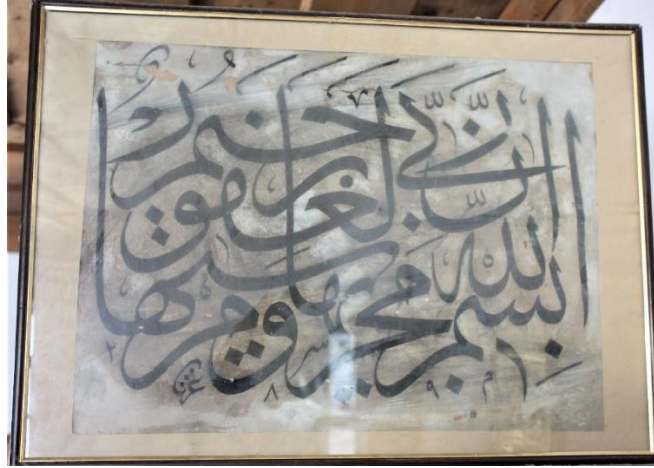 بسم الله مجريها ومرسيها
ان ربي لغفور رحيم
م ١ ٩ ٨ ٢